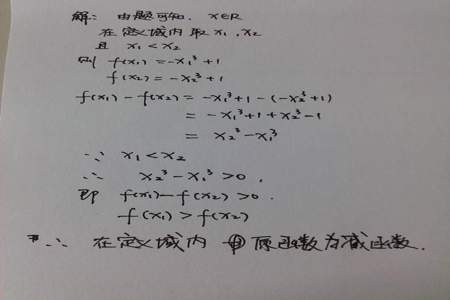 解：由题可知，x∈R
在定义域内取x₁,x₂
且 x₁<x₂
则 f(x₁)=-x₁³+1
f(x₂)=-x₂³+1
f(x₁)-f(x₂)=-x₁³+1-(-x₂³+1)
=-x₁³+1+x₂³-1
=x₂³-x₁³
∵ x₁<x₂
∴ x₂³-x₁³>0,
即 f(x₁)-f(x₂)>0.
f(x₁)>f(x₂)
∴ 在定义域内 原函数为减函数.